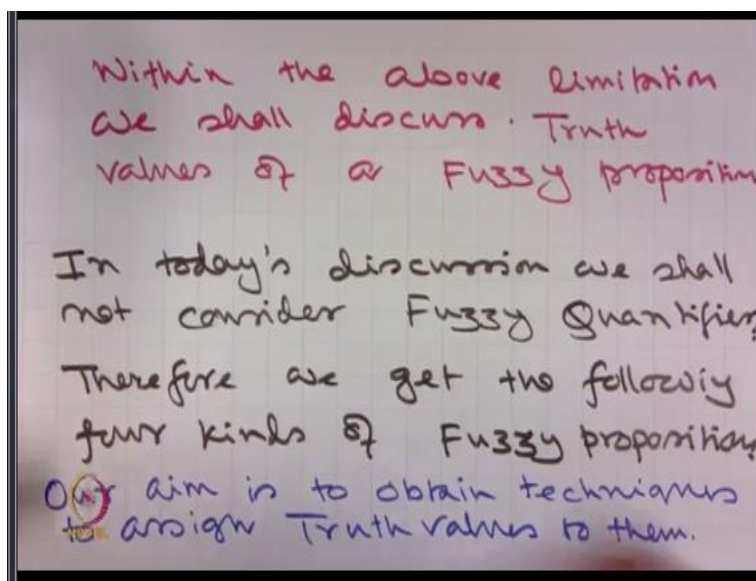 Within the above limitation
we shall discuss. Truth
values of a Fuzzy proposition
In today's discussion we shall
not consider Fuzzy Quantifier
Therefore we get the following
four kinds of Fuzzy proposition
Our aim is to obtain techniques
to assign Truth values to them.